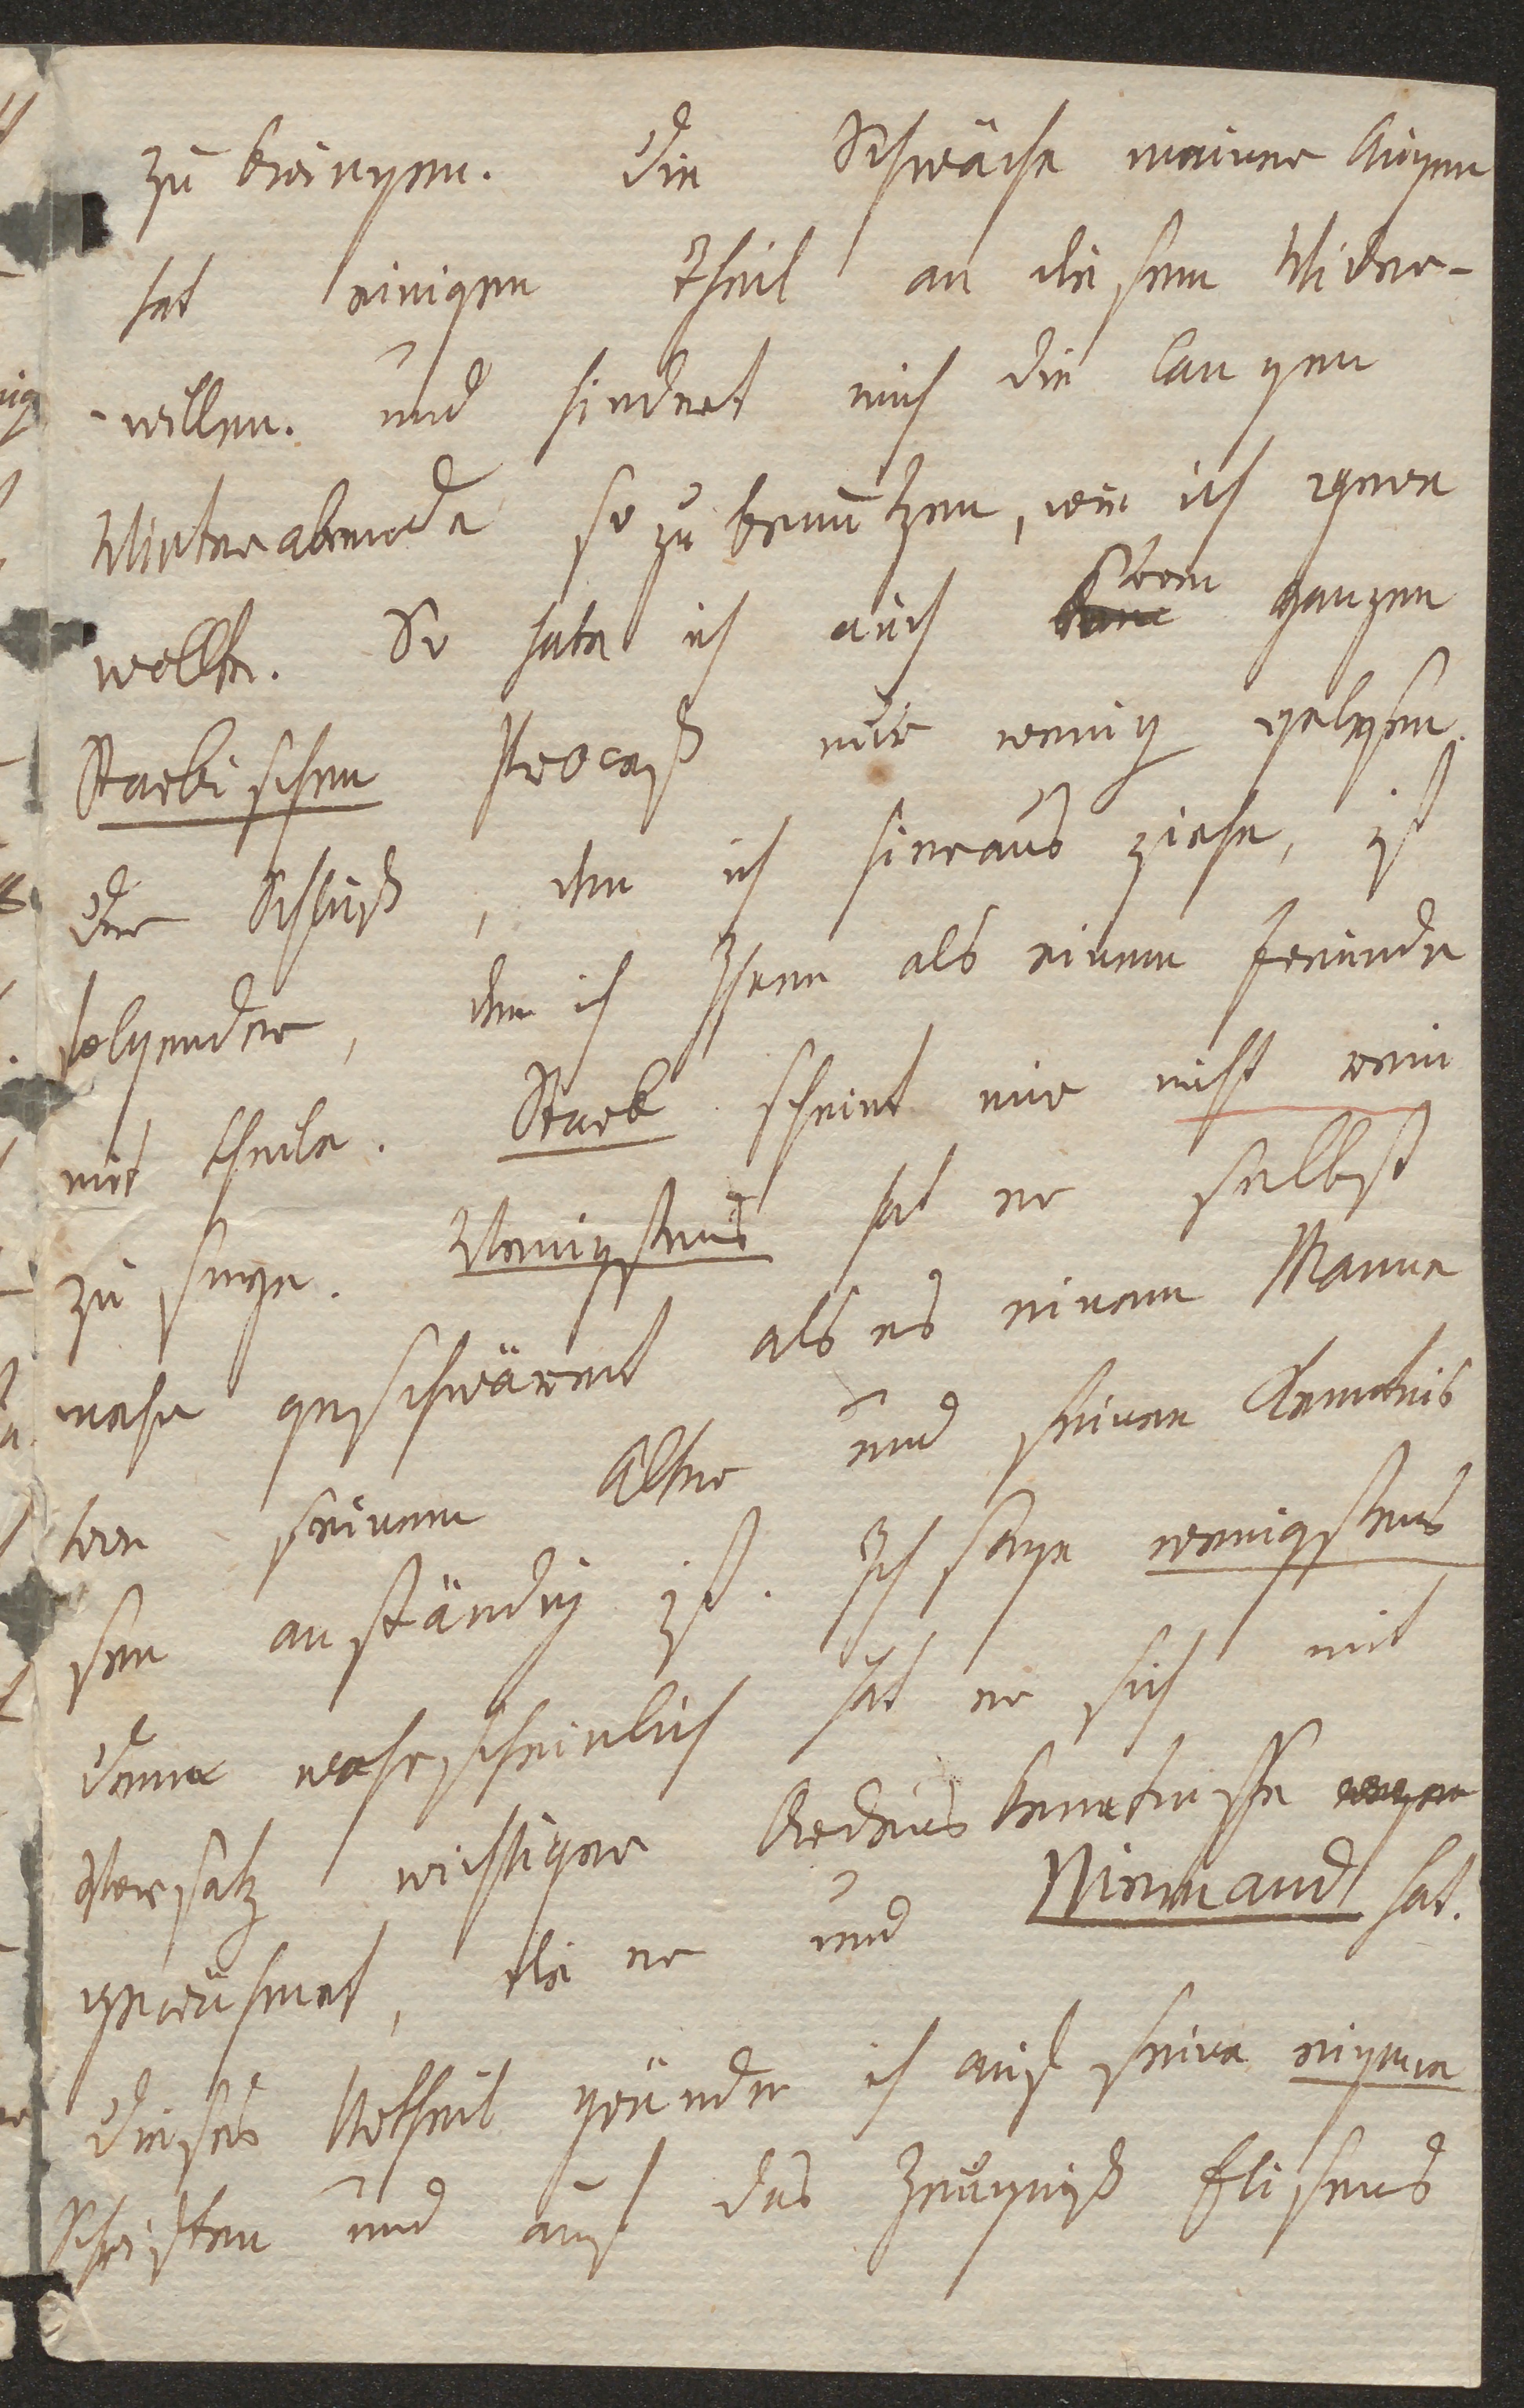 zu bringen. Die Schwäche meiner Augen
hat einigen Theil an diesem Wider-
-willen. und hindert mich die langen
Winterabende so zu benutzen, wie ich gerne
wollte. So habe ich auch vom ganzen
Starkischen Proceß nur wenig gelesen.
Der Schluß, den ich hieraus ziehe, ist
folgender, den ich Ihnen als einem Freunde
mit theile. Stark scheint mir nicht rein
zu seyn. Wenigstens hat er selbst
mehr geschwärmt als es einem Manne
von seinem Alter und seinen Kentnis
sen anständig ist. Ich sage wenigstens
denn wahrscheinlich hat er sich mit
Vorsatz wichtiger Ordens kenntnisse
gerühmet, die er und Niemand hat.
Dieses Urtheil gründe ich auf seine eigene
Schriften und auf das Zeugniß